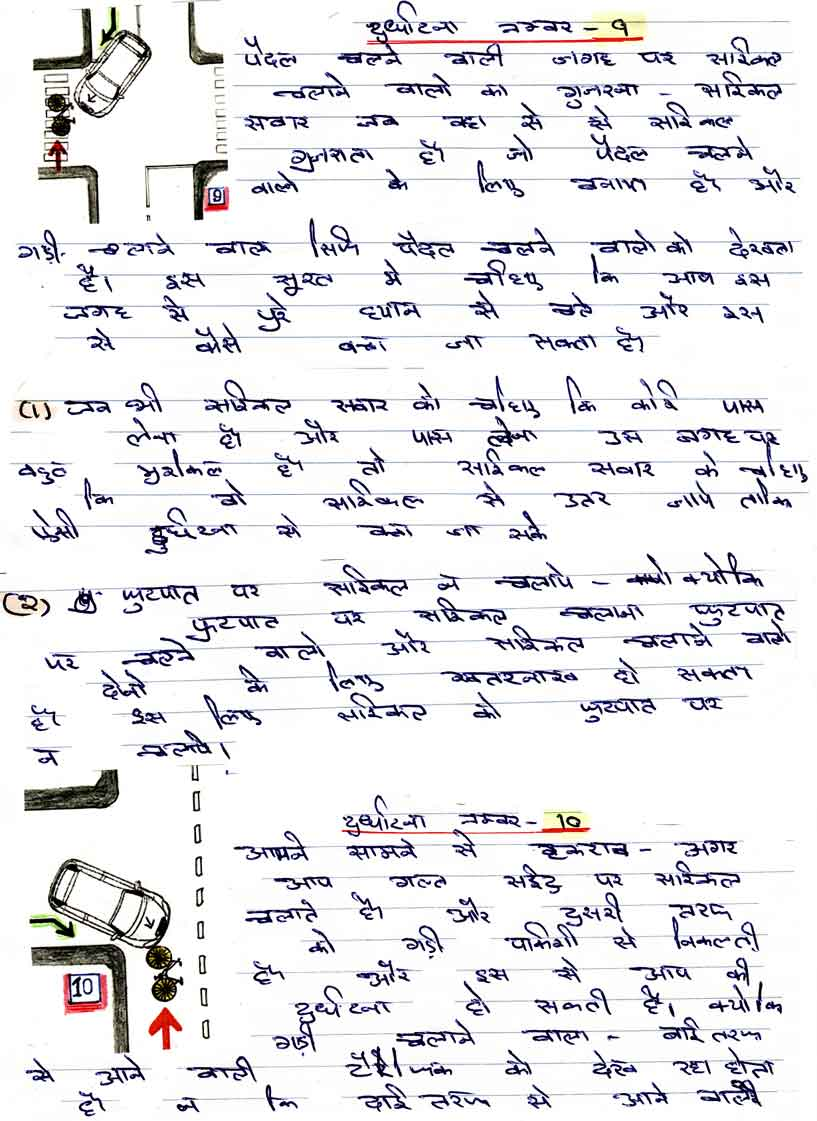 दुर्घाटना नम्बर - 9
पैदल चलने वाली जगह पर साईकिल
चलाने वालो का गुजरना - साईकिल
सवार जब वहा से इसे साईकिल
गुजारता है। जो पैदल चलने
वाले के लिए बनाया है और
9
गड़ी चलाने वाला सिर्फ पैदल चलने वालो को देखता
है। इस सूरत मे चाहिए कि आप इस
जगह से पुरे ध्यान से चले और इस
से कैसे बचा जा सकता है।
(1) जब भी साईकिल सवार को चाहिए कि कोई पास
लेना है और पास लेना उस जगह पर
बहुत मुशकिल है तो साईकिल सवार के चाहिए
कि वो साईकिल से उतर जाये ताकि
ऐसी दुर्घटना से बचा जा सके
(2) फुटपात पर साईकिल न चलाये - क्योकि
फुटपात पर साईकिल चलाना फुटपात
पर चलने वालो और साईकिल चलाने वालो
दोनो के लिए खतरनाख हो सकता
है इस लिए साईकिल को फुटपात पर
न चलाये।
दुर्घाटना नम्बर - 10
आमने सामने से टकराव - अगर
आप गल्त साईड पर साईकिल
चलाते है। और दुसरी तरफ
को गड़ी पार्किंग से निकलती
है और इस से आप की
10
दुर्घटना हो सकती है। क्योकि
गड़ी चलाने वाला - बाई तरफ
से आने वाली टैरैफिक को देख रहा होता
है। न कि दाई तरफ से आने वाली